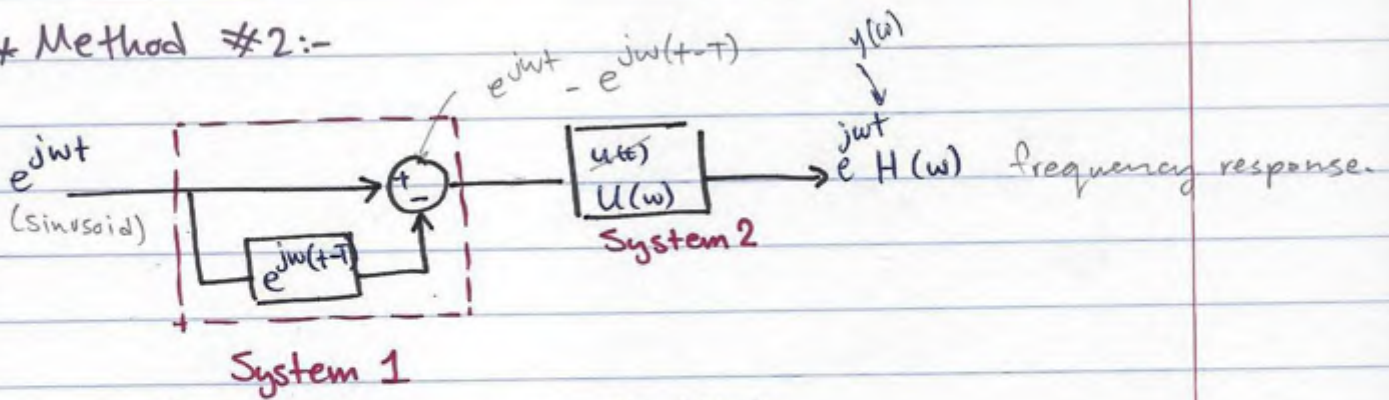 * Method #2:-
y(ω)
e^{jωt} - e^{jω(t-T)}
e^{jωt}
(sinusoid)
+
-
e^{jω(t-T)}
u(t)
U(ω)
e^{jωt} H(ω) frequency response.
System 2
System 1